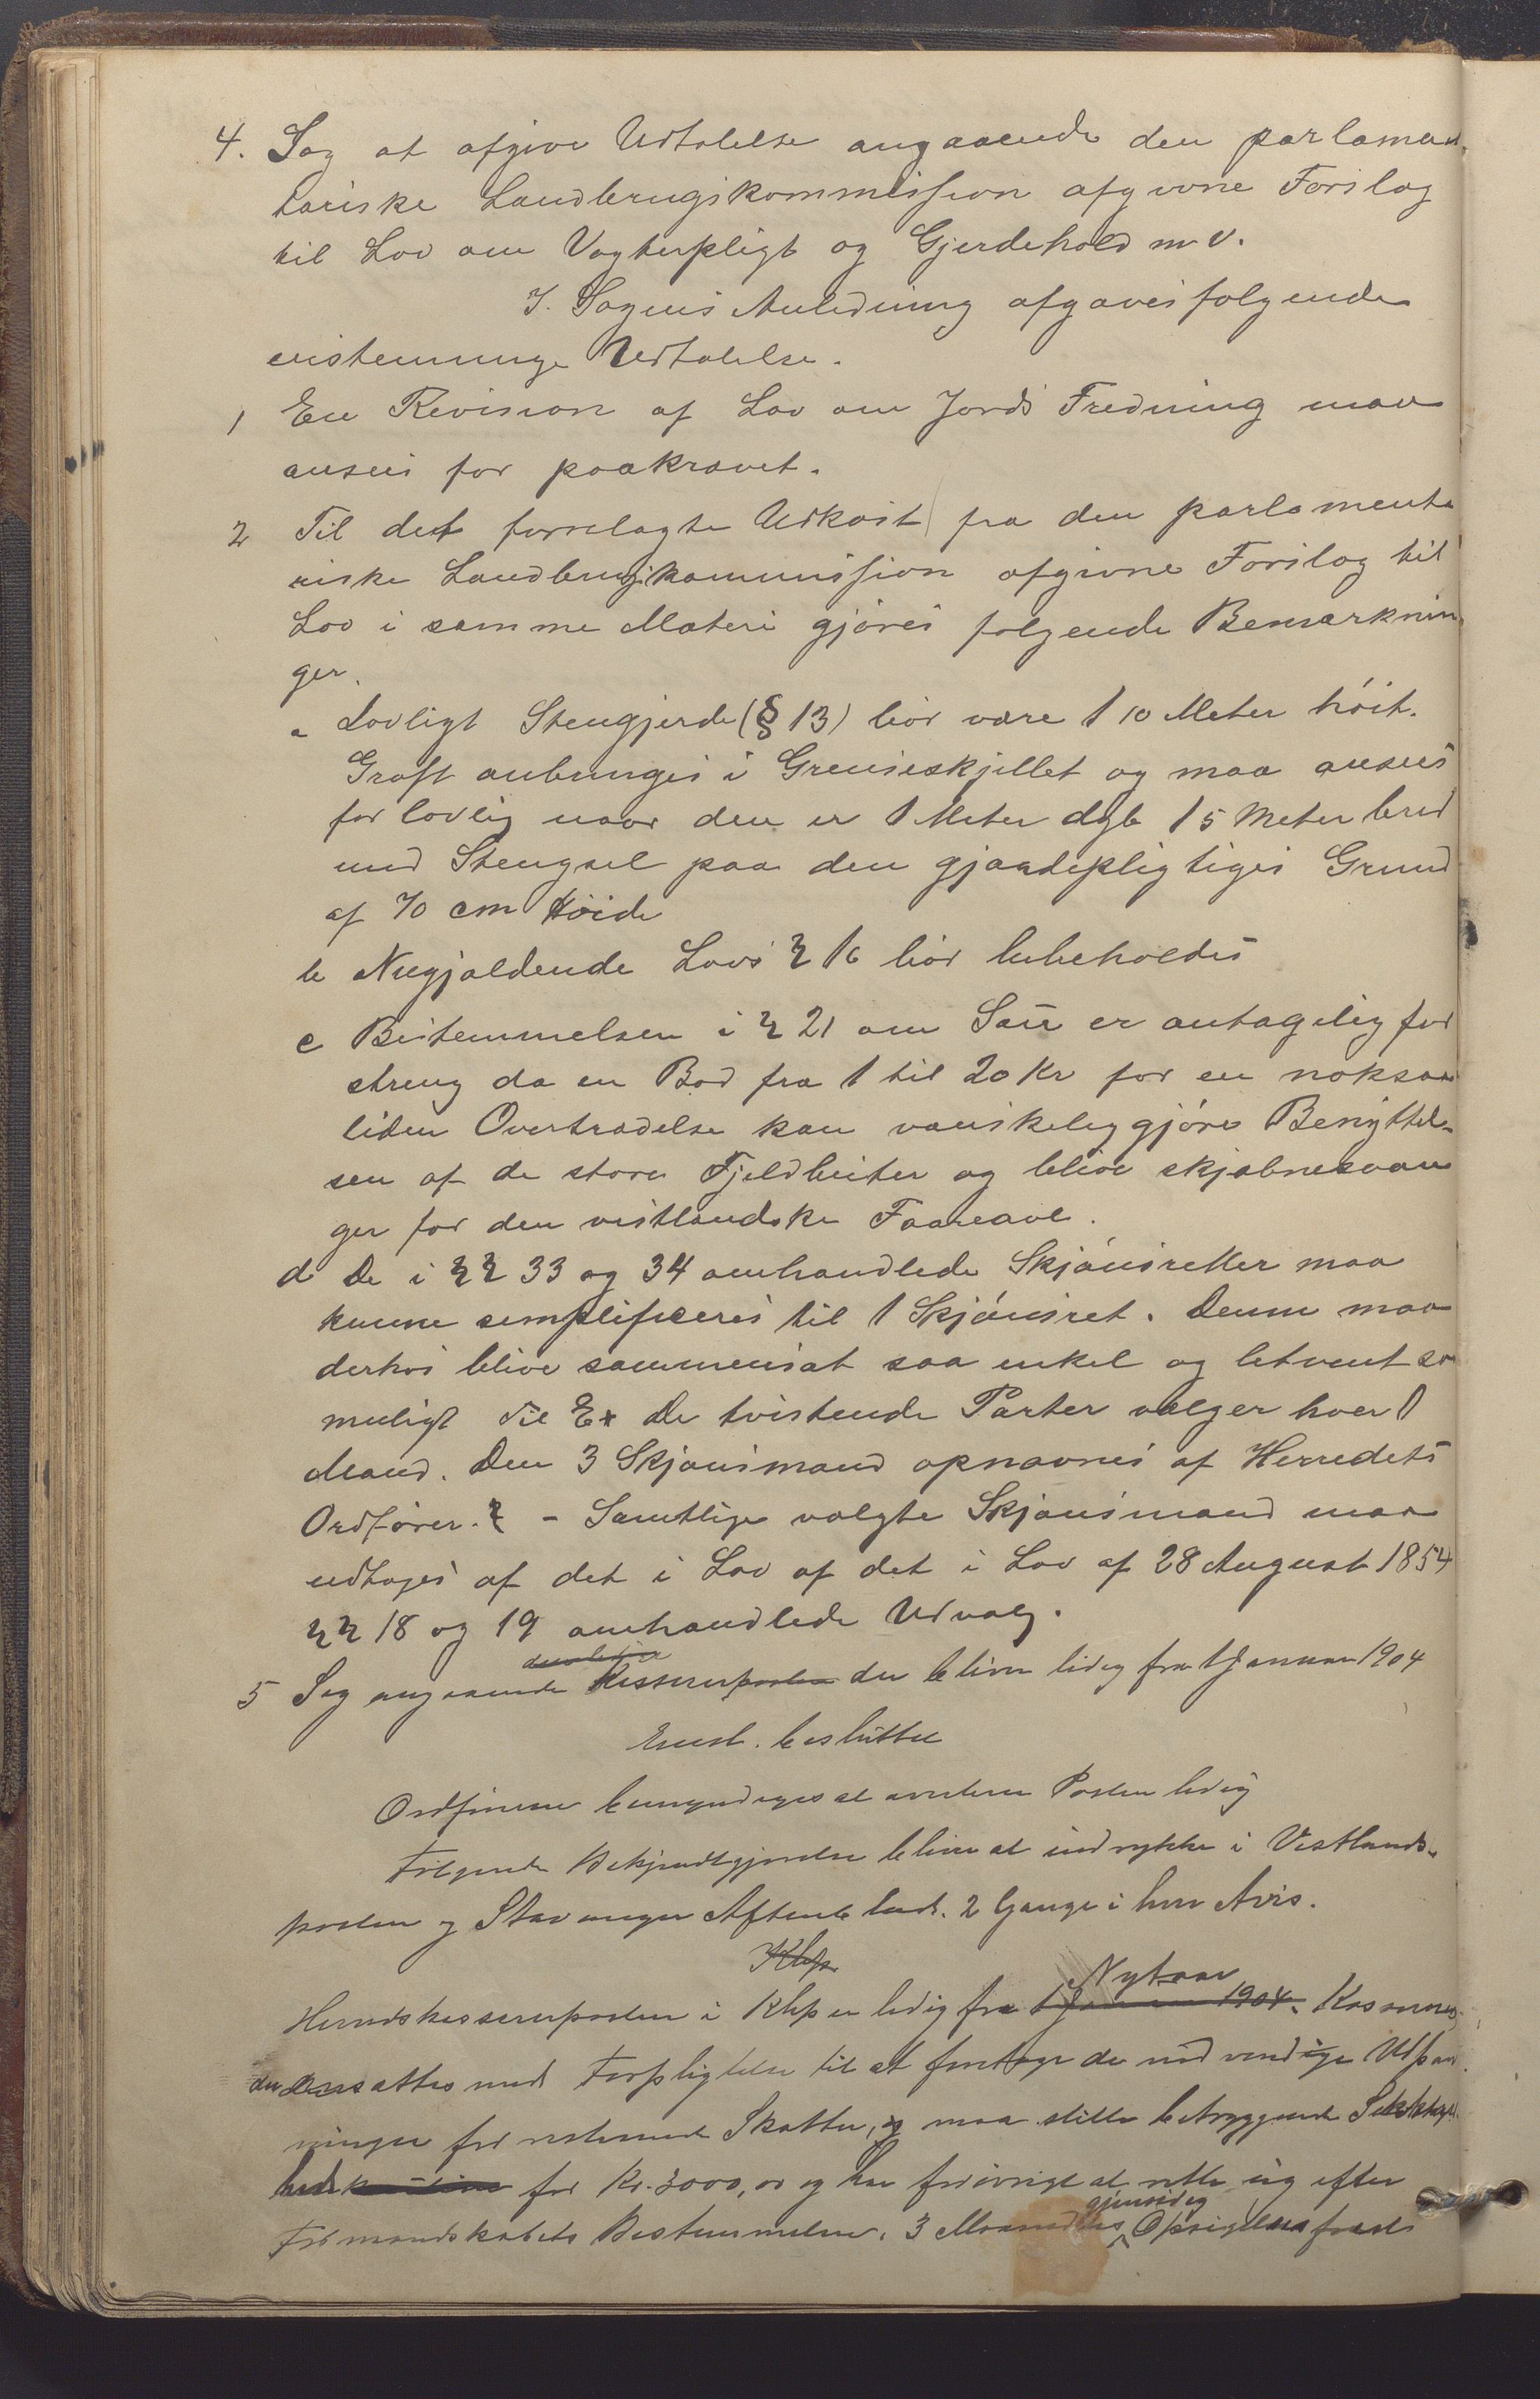 4. Sag at afgive Udtalelse angaaende den parlamen-
tariske Landbrugskommission afgivne Forslag
til Lov om Vogterpligt og Gjerdehold m. v.
I. Sagens Anledning afgaves følgende
enstemmige Udtalelse.
1 En Revision af Lov om Jords Fredning maa
ansees for paakrævet.
2 Til det forelagte Udkast fra den parlamenta
riske Landbrugskommission afgivne Forslag til
Lov i samme Materi gjøres følgende Bemærknin-
ger.
a Lovligt Stengjerde (§ 13) bør være 1 10 Meter høit.
Grøft anbringes i Grenseskjellet og maa ansees
for lovlig naar den er 1 Meter dyb 1 5 Meter bred
med Stengsel paa den gjærdepligtiges Grund
af 70 cm Høide
b Nugjældende Lovs § 16 bør bibeholdes
c Bestemmelsen i § 21 om Sau er antagelig for
streng da en Bod fra 1 til 20 Kr for en noksaa
liden Overtrædelse kan vanskeliggjøre Benyttel-
sen af de store Fjeldbeiter og blive skjæbnesvan
ger for den vestlandske Faareavl.
d De i §§ 33 og 34 omhandlede Skjønsretter maa
kunne simplificeres til 1 Skjønsret. Denne maa
derhos blive sammensat saa enkel og letvent so
muligt Til Ex De tvistende Parter vælger hver 1
Mand. Den 3 Skjønsmand opnævnes af Herredets
Ordfører. - Samtlige valgte Skjønsmænd maa
udtages af det i Lov af det i Lov af 28 August 1854
§§ 18 og 19 omhandlede Udvalg.
5 Sag angaaende Kasserposten der bliver ledig fra 1 Januar 1904
Enst. besluttet
Ordføreren bemyndiges at avertere Posten ledig
Følgende Bekjendtgjørelse bliver at indrykke i Vestlands-
posten og Stavanger Aftenblad. 2 Gange i hver Avis.
Klep
Herredskassererposten i Klep er ledig fra 1 Januar 1904. Nytaar Kasserer
en ansættes med Forpligtelse til at foretage de nødvendige Udpan
ninger for resterende Skatter, og maa stille betryggende Sikker
hed for Kr. 3000,00 og har forøvrigt at rette sig efter
Formandskabets Bestemmelser. 3 Maaneders gjensidig Opsigelsesfrist